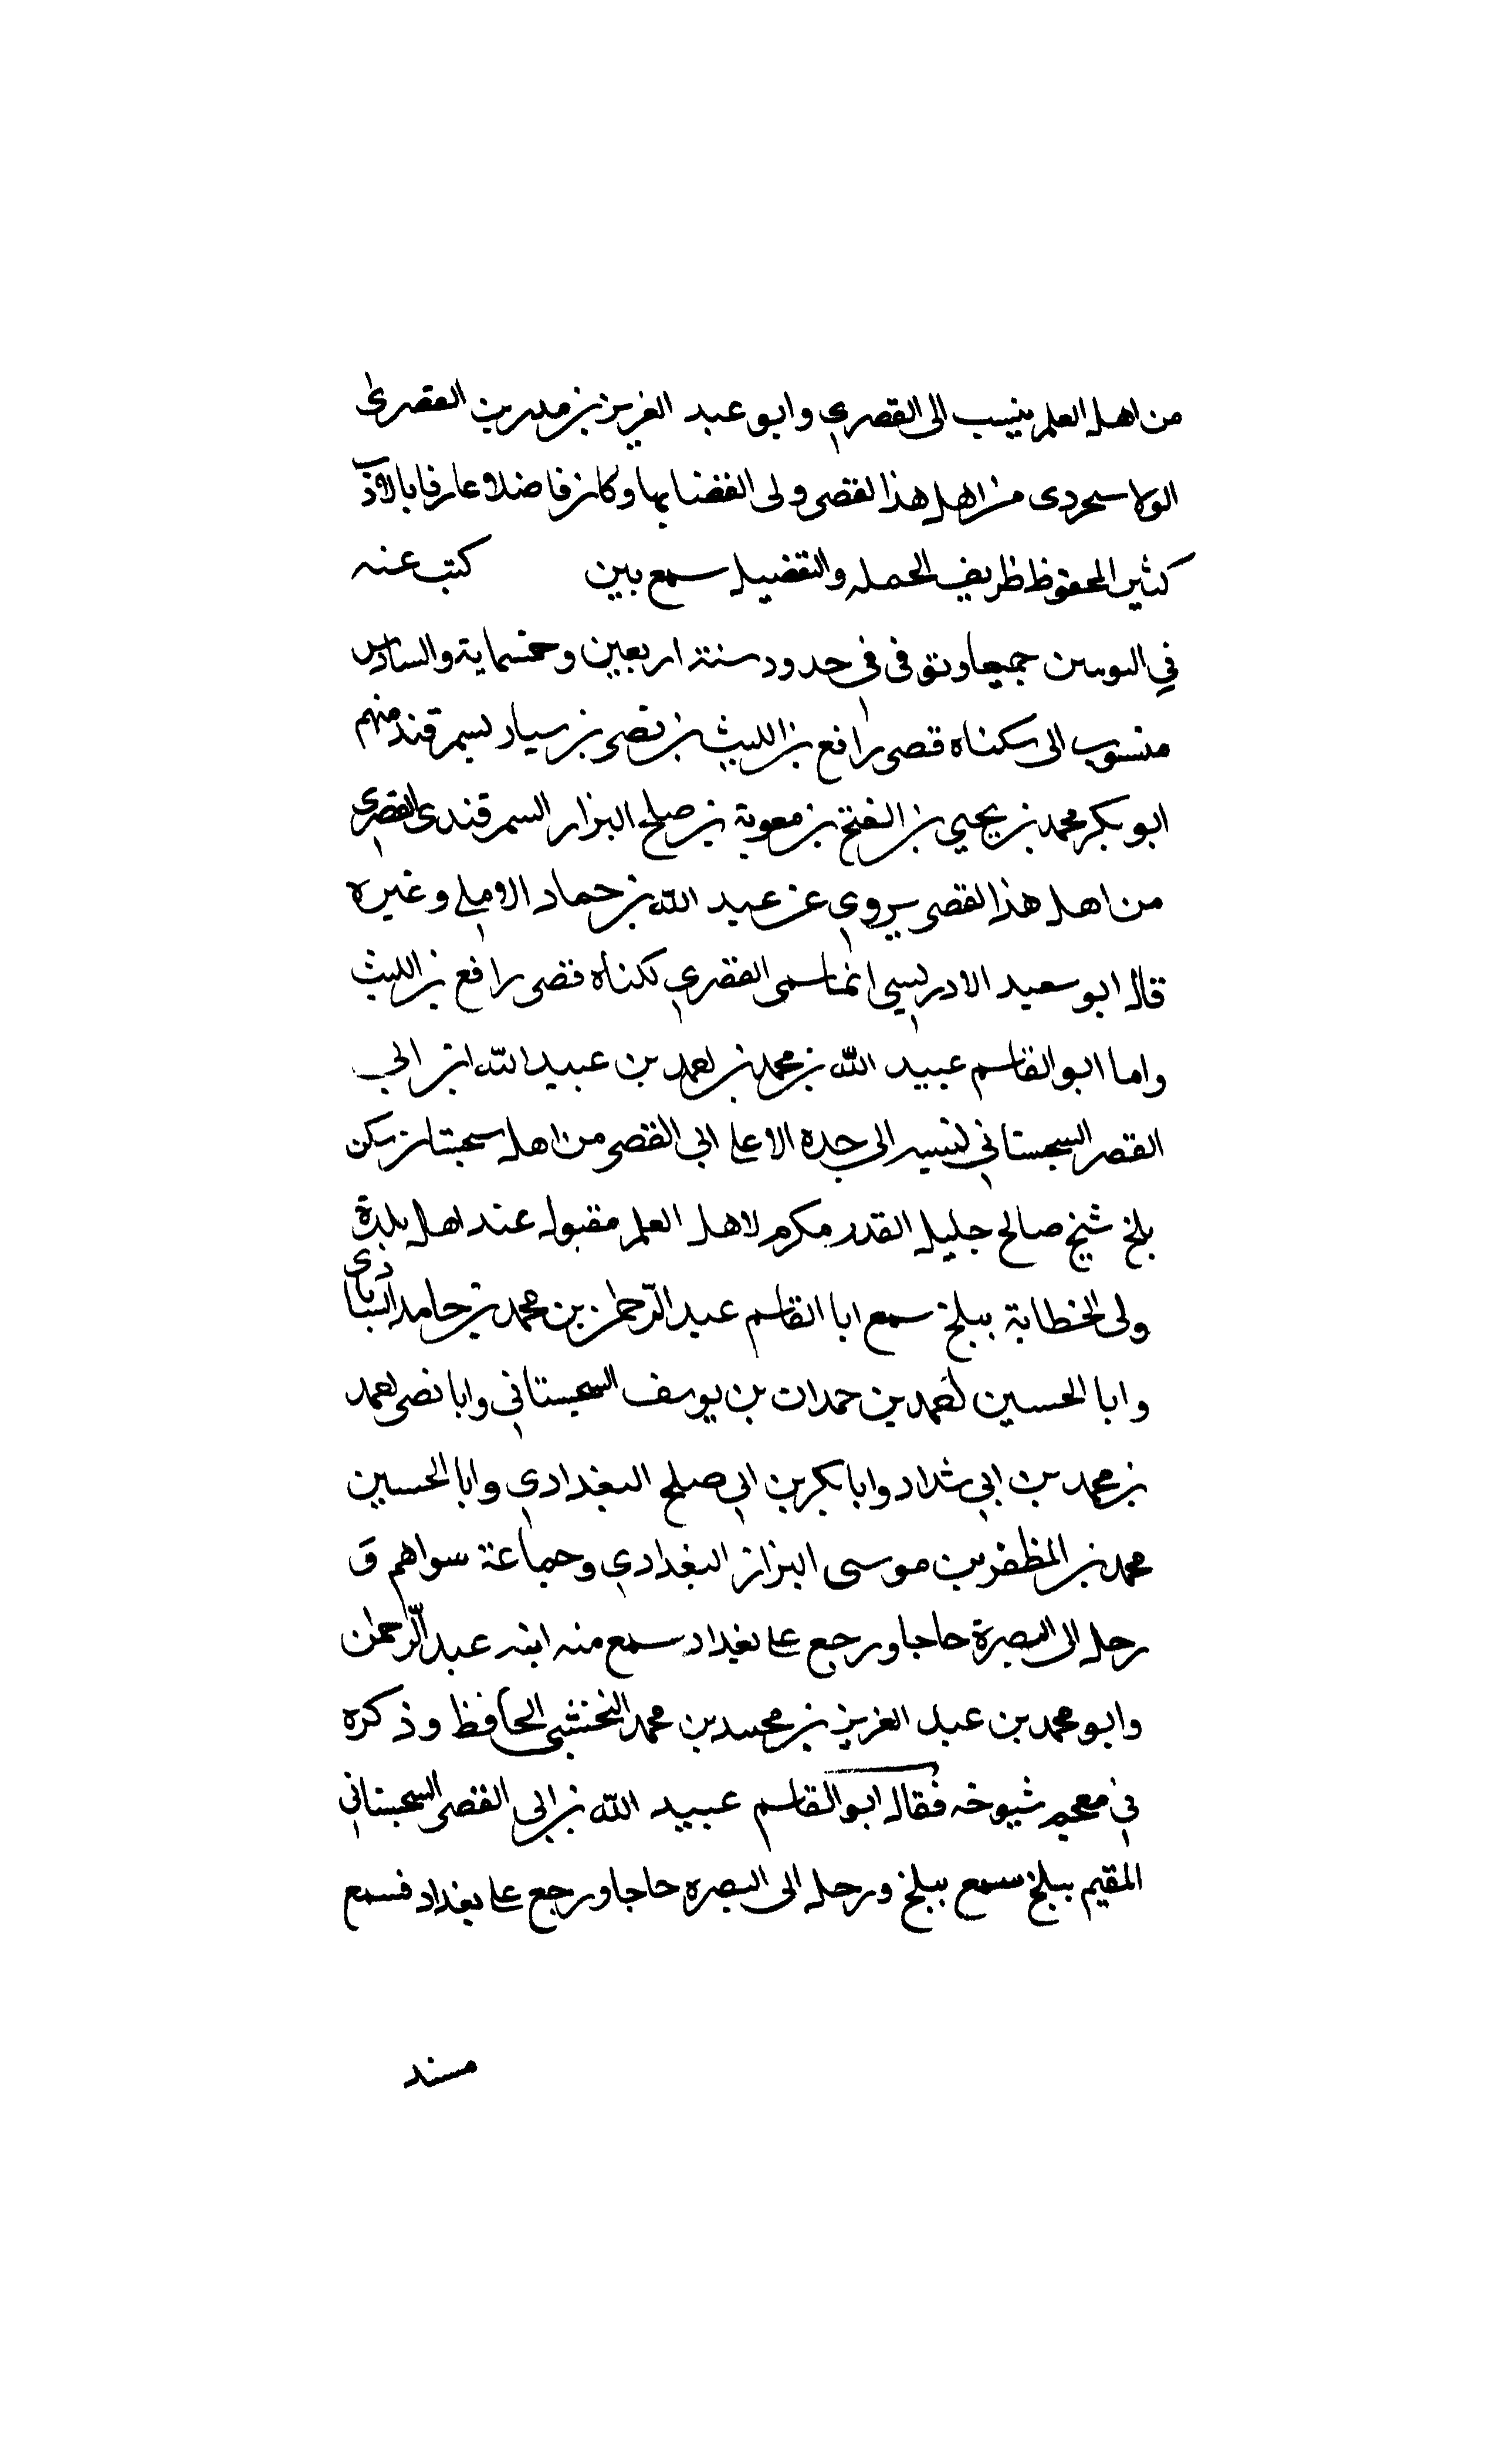 من اهل العلم ينسب الى القصرى وابو عبد العزيز بن بن القصرى
الولاسجردى من اهل هذا القصر ولى القضا بها وكان فاضلا عارفا بالادب
كثير المحفوظ ظريف الجمله والتفضيل سمع بين كتب عنه
في جميعا وتوفى فى حدود سنة اربعين وخمسماية والسادس
منسوب الى سكناه قصر رافع بن الليث بن نصر بن سيار بسمرقند منهم
ابو بكر محمد بن يحيى بن الفتح بن معوية بن صلح البزار السمرقندى القصرى
من اهل هذا القصر يروى عن عبد الله بن حماد الاملي وغيره
قال ابو سعيد الادريسي انما سمى القصرى لكناه قصر رافع بن الليث
واما ابو القاسم عبيد الله بن محمد بن احمد بن عبيد الله ابن ابي
القصر السجستاني نسبه الى جده الاعلى ابي القصر من اهل سجستان سكن
بلخ شيخ صالح جليل القدر مكرم لاهل العلم مقبول عند اهل بلدة
ولى الخطابة ببلخ سمع ابا القاسم عبد الرحمن بن محمد بن حامد
وابا الحسين احمد بن حمدان بن يوسف السجستاني وابا نصر احمد
بن محمد بن ابي شداد وابا بكر بن ابي صلح البغدادي وابا الحسين
محمد بن المظفر بن موسى البزاز البغدادي وجماعة سواهم و
رحل الى البصرة حاجا ورجع على بغداد سمع منه ابنه عبد الرحمن
وابو محمد بن عبد العزيز بن محمد بن محمد النخشبي الحافظ وذكره
في معجم شيوخه فقال ابو القاسم عبيد الله بن ابي القصر السجستاني
المقيم ببلخ سمع ببلخ ورحل الى البصره حاجا ورجع على بغداد فسمع
مسند